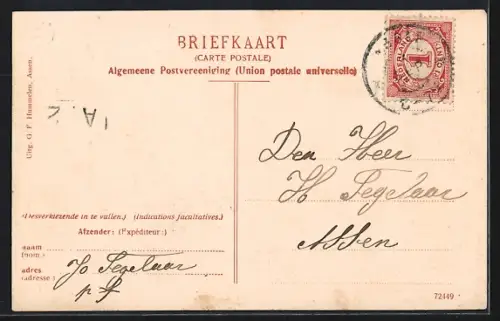 BRIEFKAART
(CARTE POSTALE)
Algemeene Postvereeniging (Union postale universelle)
Uitg. G. F. Hummelen, Assen.
NEDERLAND
1
Den Heer
H Segelaar
Assen
(Desverkiezende in te vullen.) (Indications facultatives.)
Afzender: (Expéditeur:)
naam
(nom.)
adres
(adresse:)
Jo Segelaar
72449